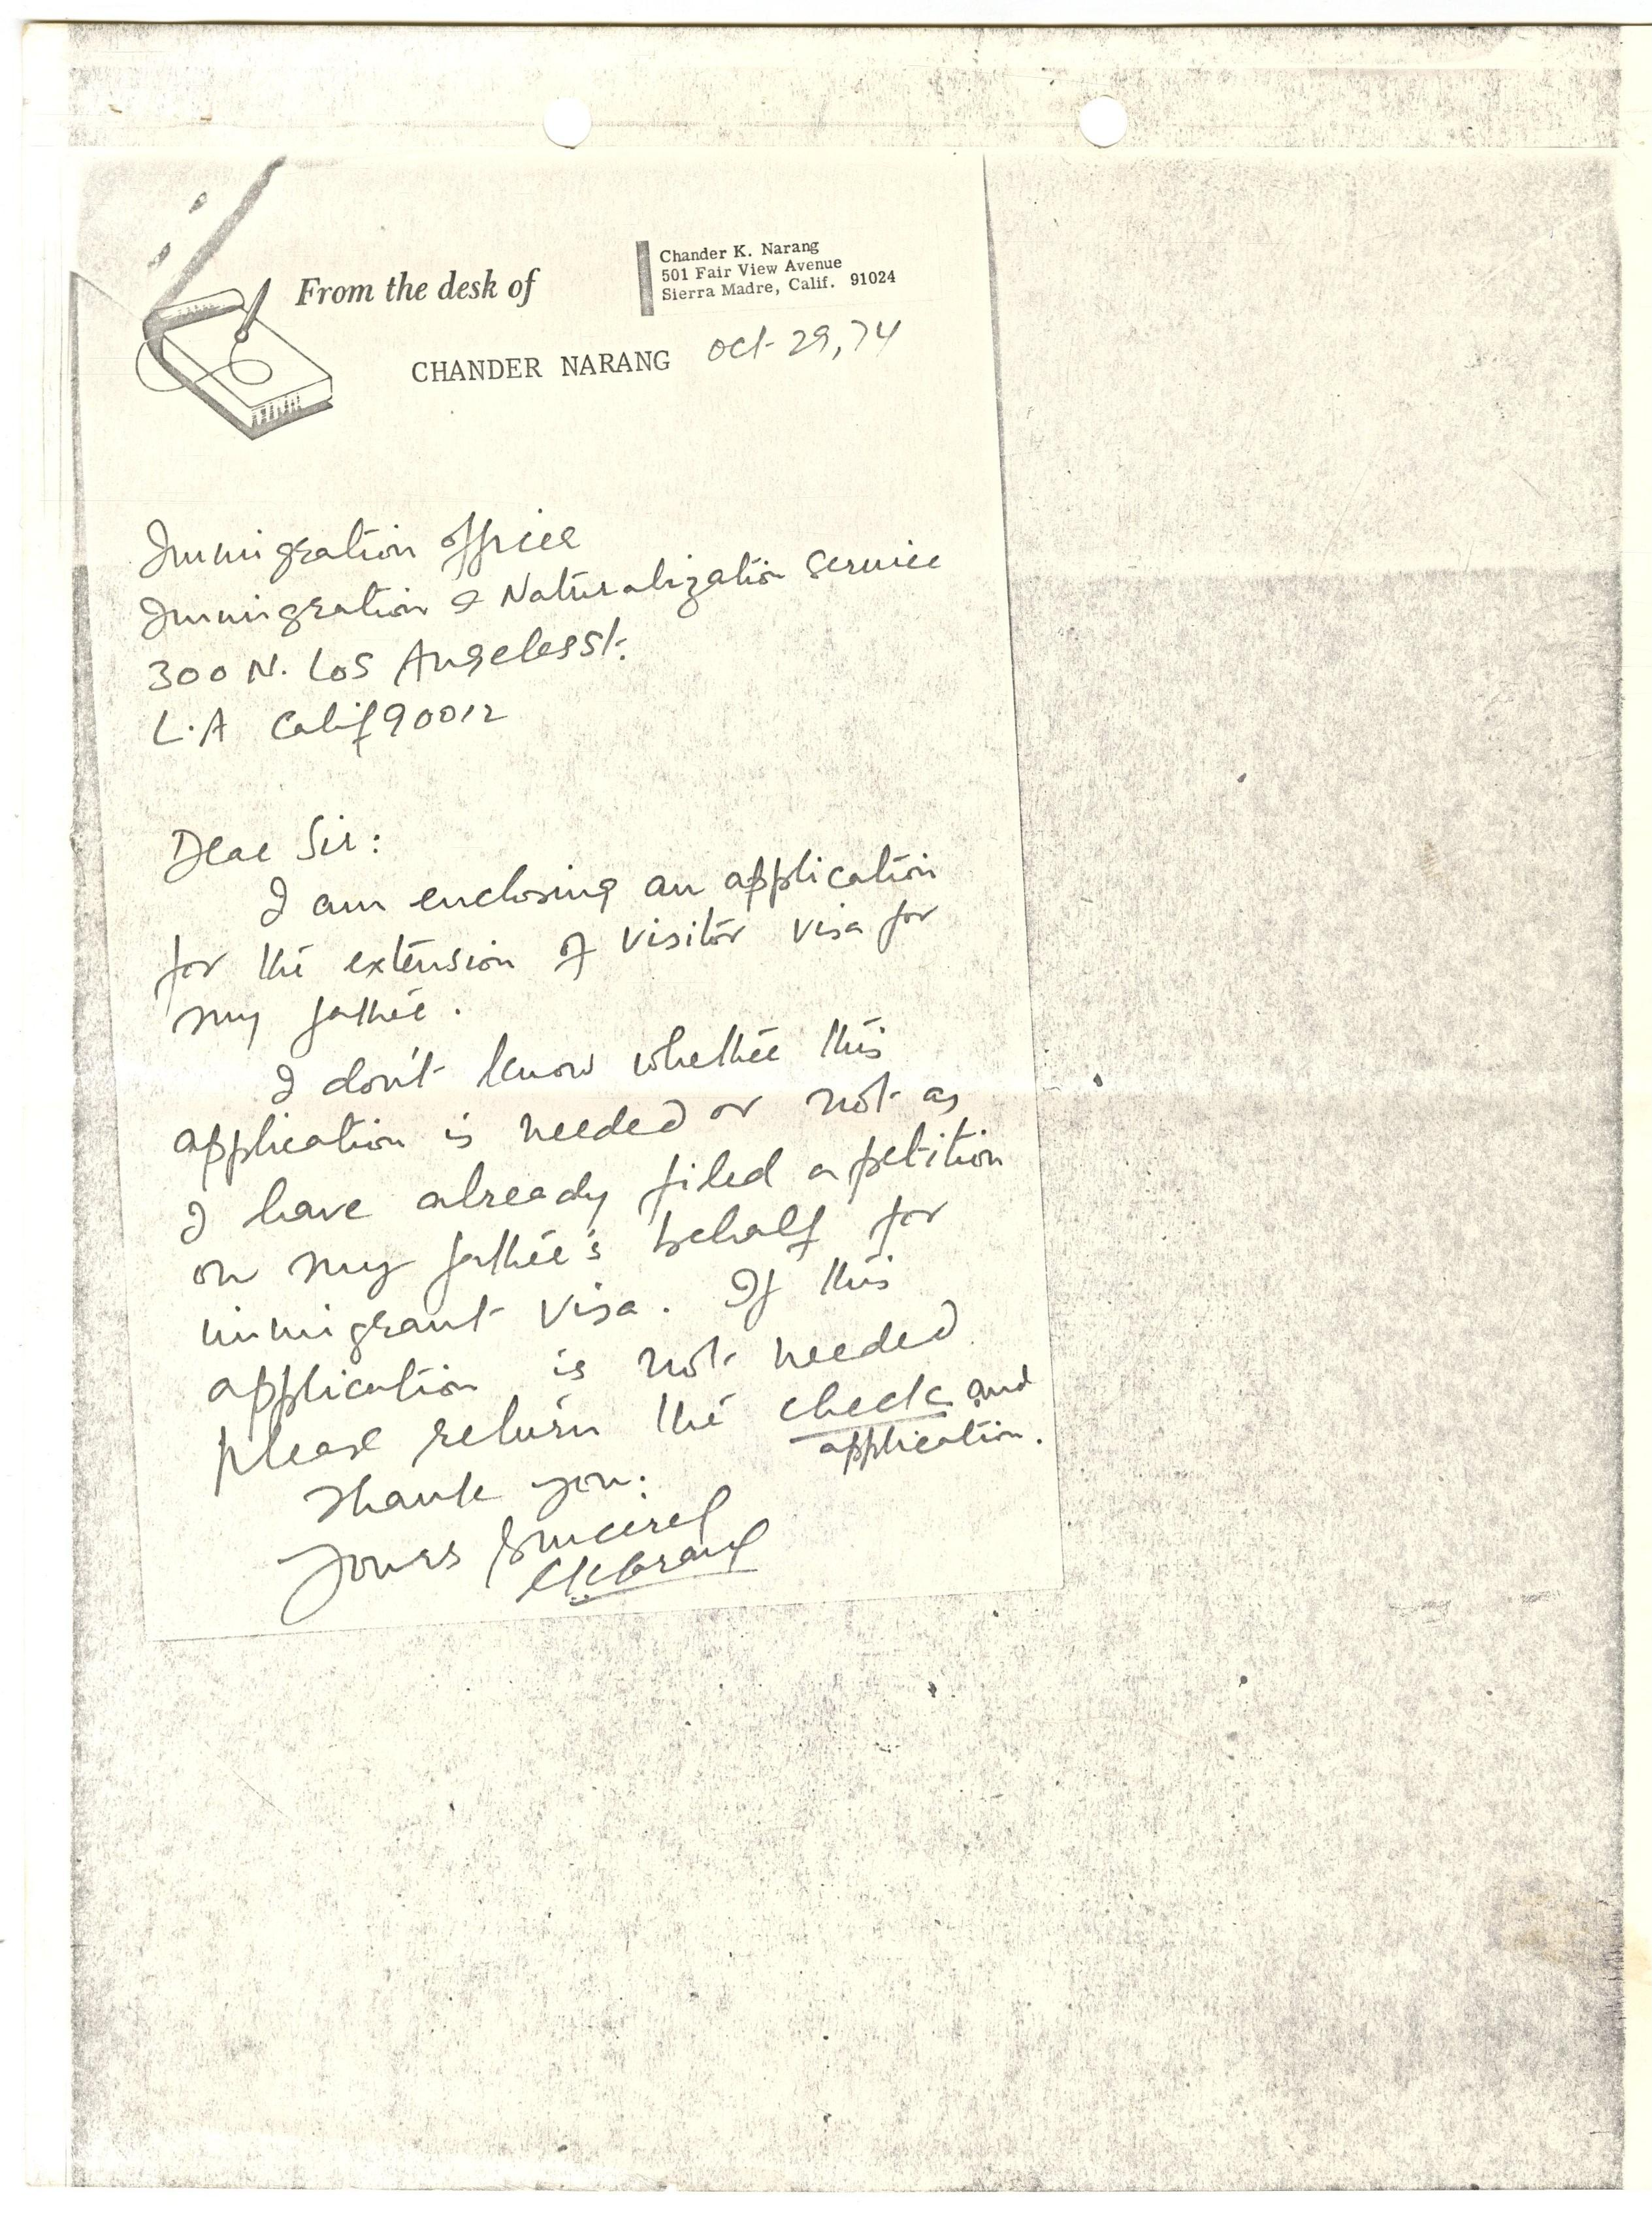 From the desk of
Chander K. Narang
501 Fair View Avenue
Sierra Madre, Calif. 91024
CHANDER NARANG
Oct 29, 74
Immigration office
Immigration & Naturalization Service
300 N. Los Angeles St.
L.A Calif 90012
Dear Sir:
I am enclosing an application
for the extension of visitor visa for
my father.
I don't know whether this
application is needed or not as
I have already filed a petition
on my father's behalf for
immigrant visa. If this
application is not needed
please return the check and
application.
Thank you.
Yours Sincerel